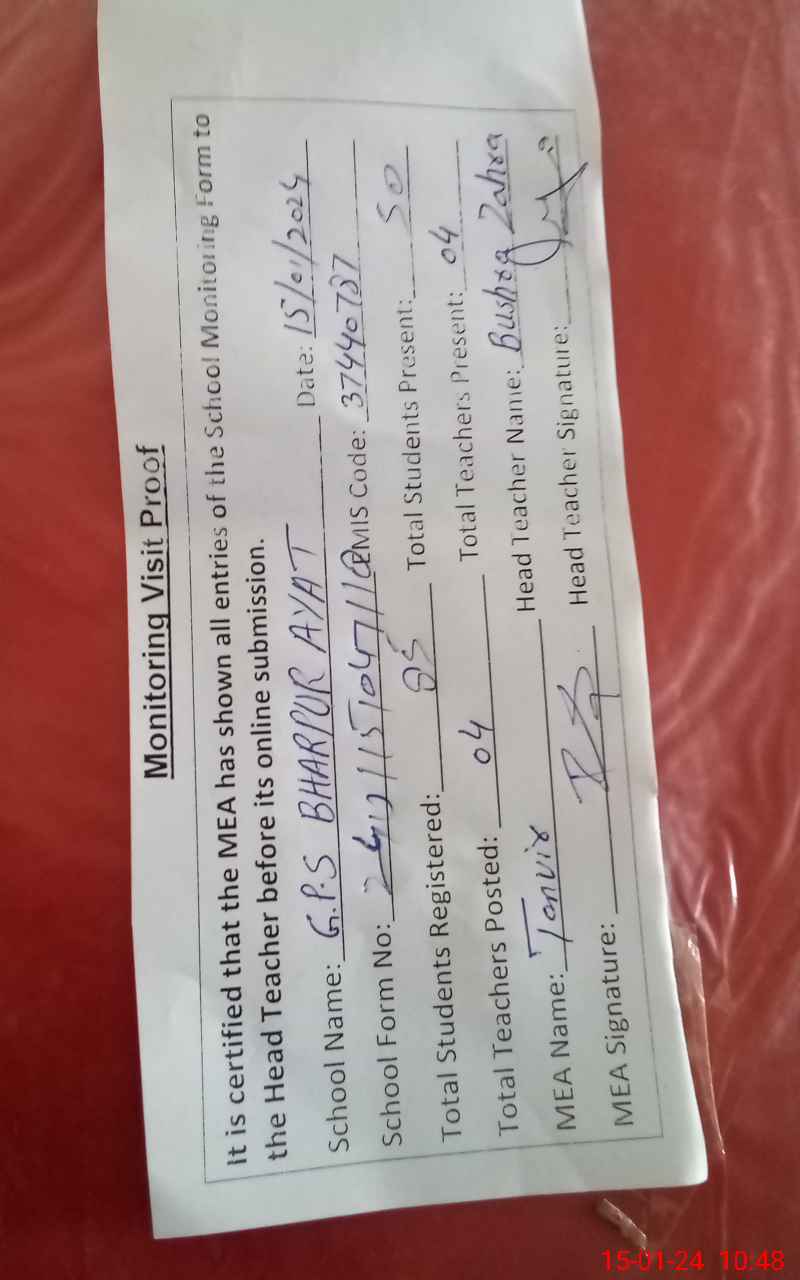 Monitoring Visit Proof
It is certified that the MEA has shown all entries of the School Monitoring Form to
the Head Teacher before its online submission.
School Name: G.P.S BHARPUR AYAT Date: 15/01/2024
School Form No: EMIS Code: 37440787
Total Students Registered: 85 Total Students Present: 50
Total Teachers Posted: 04 Total Teachers Present: 04
MEA Name: Tanvir Head Teacher Name: Bushra Zahra
MEA Signature: Head Teacher Signature:
15-01-24 10:48